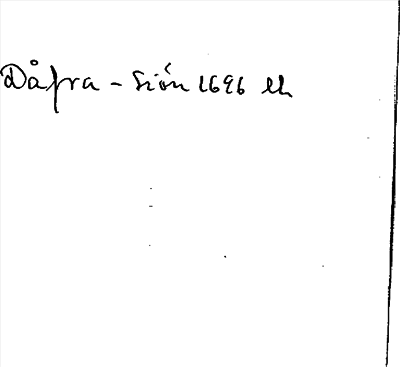 Dåfra - Sión 1696 eh